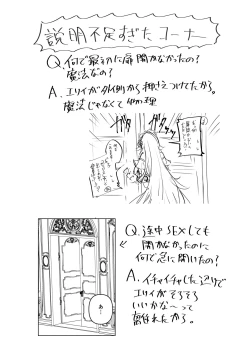 説明不足すぎたコーナー
Q.何で最初に扉開かなかったの?
魔法なの?
A.エリィが外側から押さえつけてたから。
魔法じゃなくて物理
ガタッ
ガタガタッ
Q.途中SEXしても
開かなかったのに
何で急に開いたの?
A.イチャイチャした辺りで
エリィがそろそろ
いいかな〜って
離れたから。